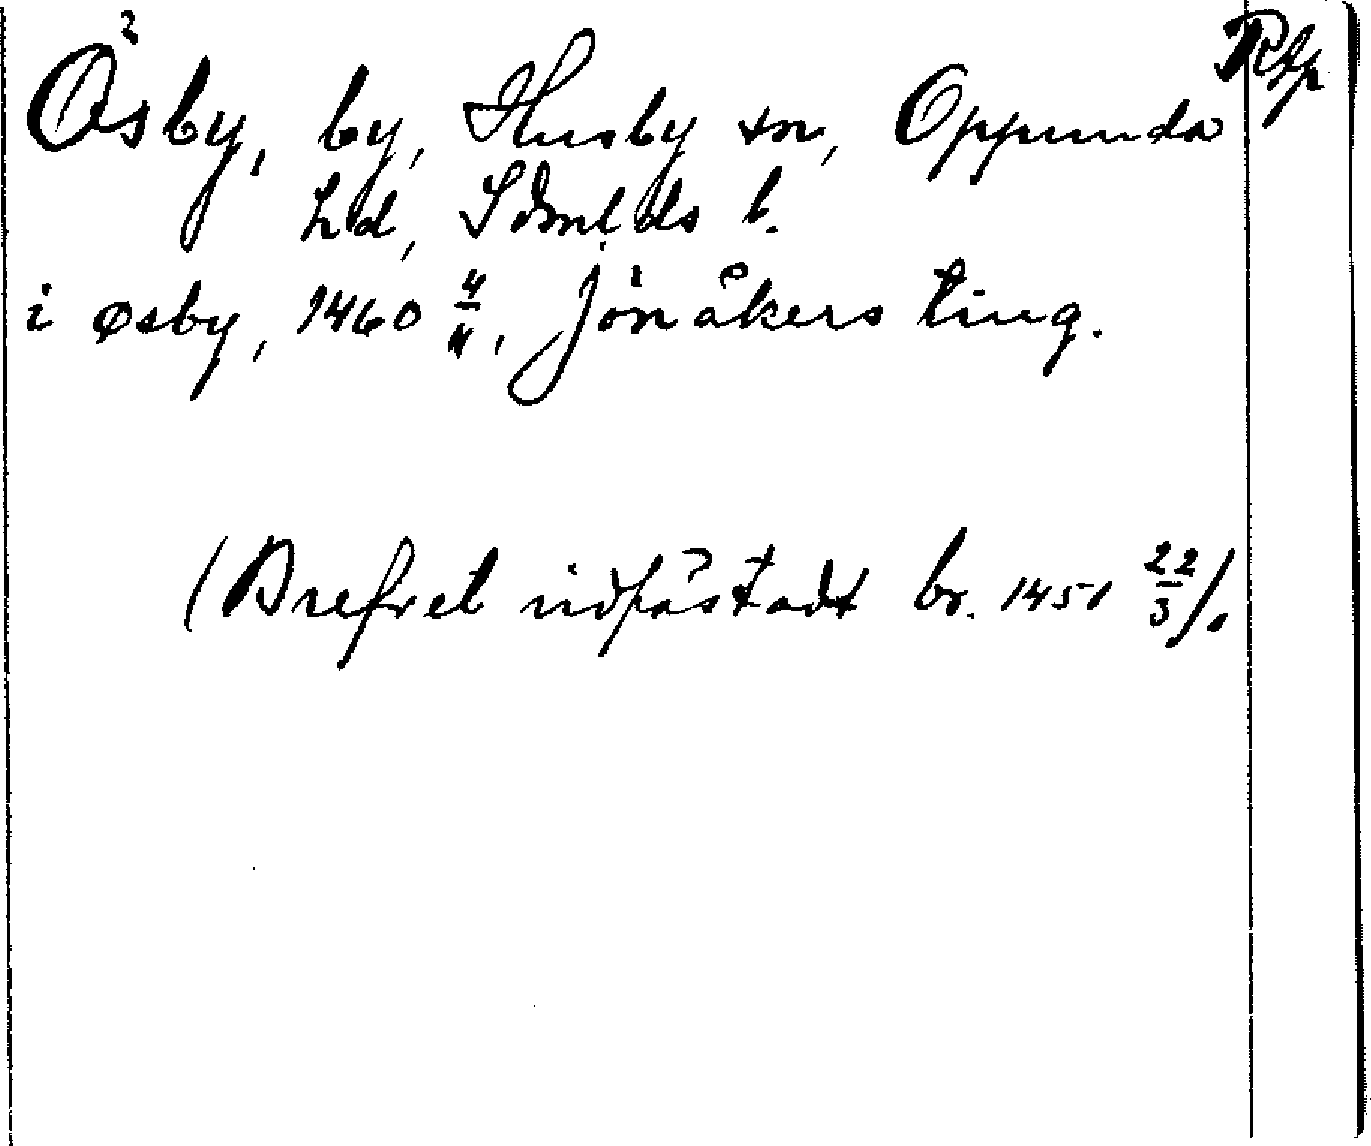 Rsp
Ösby, by, Husby sn, Oppunda
hd, Södmlds l.
i øsby, 1460 4/11, Jönåkers ting.
(Brefvet vidfästadt br. 1451 22/3/.